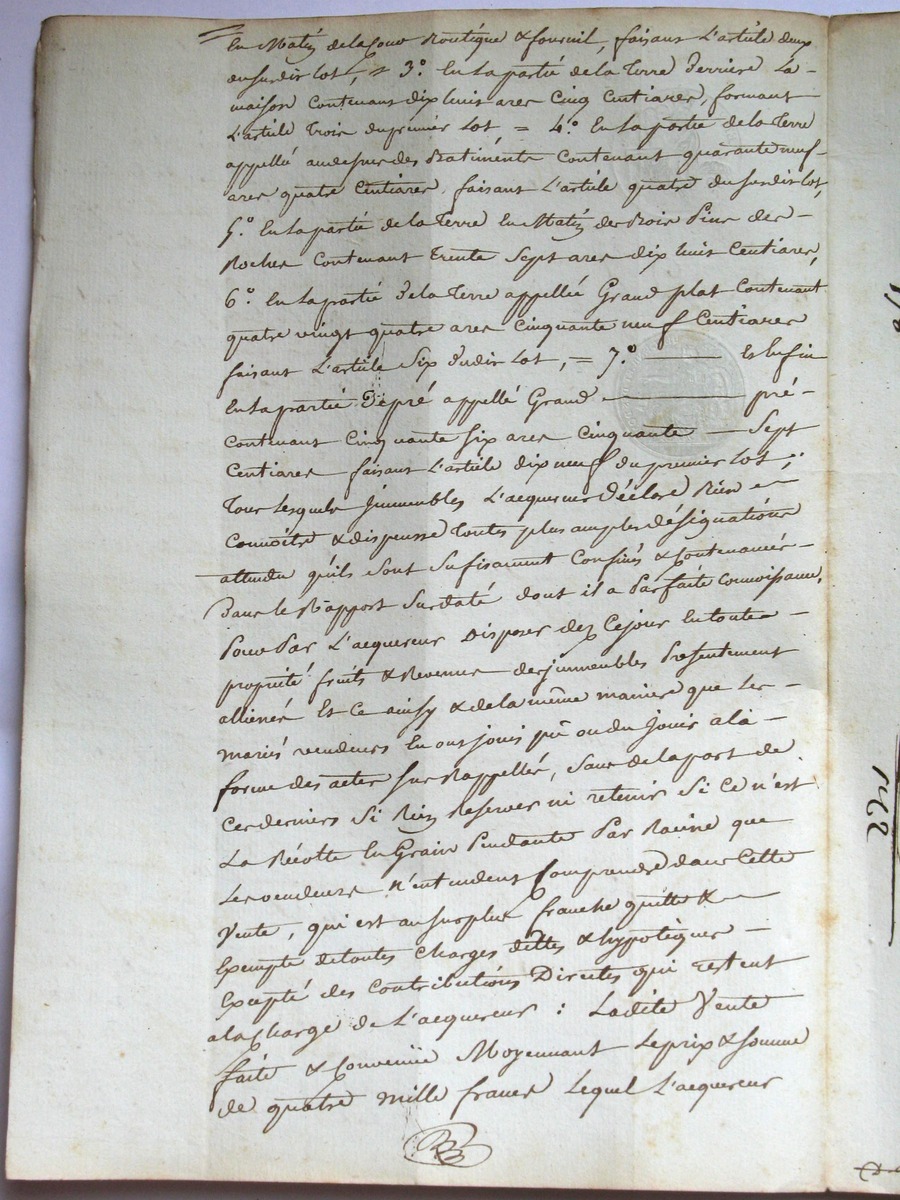 En Matiz de la Cour Boutique & fournil, faisant L'article deux
du susdit lot, = 3.° En la partie de la Terre Derriere La –
maison Contenant dix huit ares Cinq Centiares, formant
L'article Trois du premier Lot = 4.° En la partie de la Terre
appellé au dessus des Batiments Contenant quarante neuf
ares quatre Centiares, faisant L'article quatre du susdit lot,
5.° En la partie de la Terre En Matiz des Bois Pins des –
Roches Contenant Trente Sept ares dix huit Centiares,
6.° En la partie De la Terre appellée Grand plat Contenant
quatre vingt quatre ares Cinquante neuf Centiares
faisant L'article Six dudit Lot, = 7.° — Et Enfin
En la partie De pré appellé Grand — pré –
Contenant Cinquante Six ares Cinquante — Sept
Centiares faisant L'article dix neuf du premier Lot ;
Tous lesquels Jmmeubles L'acquereur Déclare Bien —
Connoître & dispense Toutes plus amples désignations
attendu qu'ils sont Sufisament Confinés & Contenancés –
Dans le Rapport Surdaté dont il a Parfaite Connoissance,
Pour Par L'acquereur Disposer dez Cejour En toute –
propriété fruits & Revenus des jmmeubles Presentement
alliénés Et ce ainsy & de la même maniere que Les –
mariés vendeurs En ont jouis pû ou du Jouir a la –
forme des actes Sus Rappellés, Sans de la part de
Ces derniers Si Rien Reserver ni retenir Si ce n'est
La Récolte En Grain Pendante Par Racine que
Les vendeurs n'entendent Comprendre dans Cette
Vente, qui est au surplus franche quitte & —
Exempte de toutes Charges dettes & hypotèques —
Excepté des Contributions Directes qui restent
a la Charge de L'acquereur : Ladite Vente
faite & Convenüe Moyennant Le prix & Somme
de quatre mille francs Lequel L'acquereur